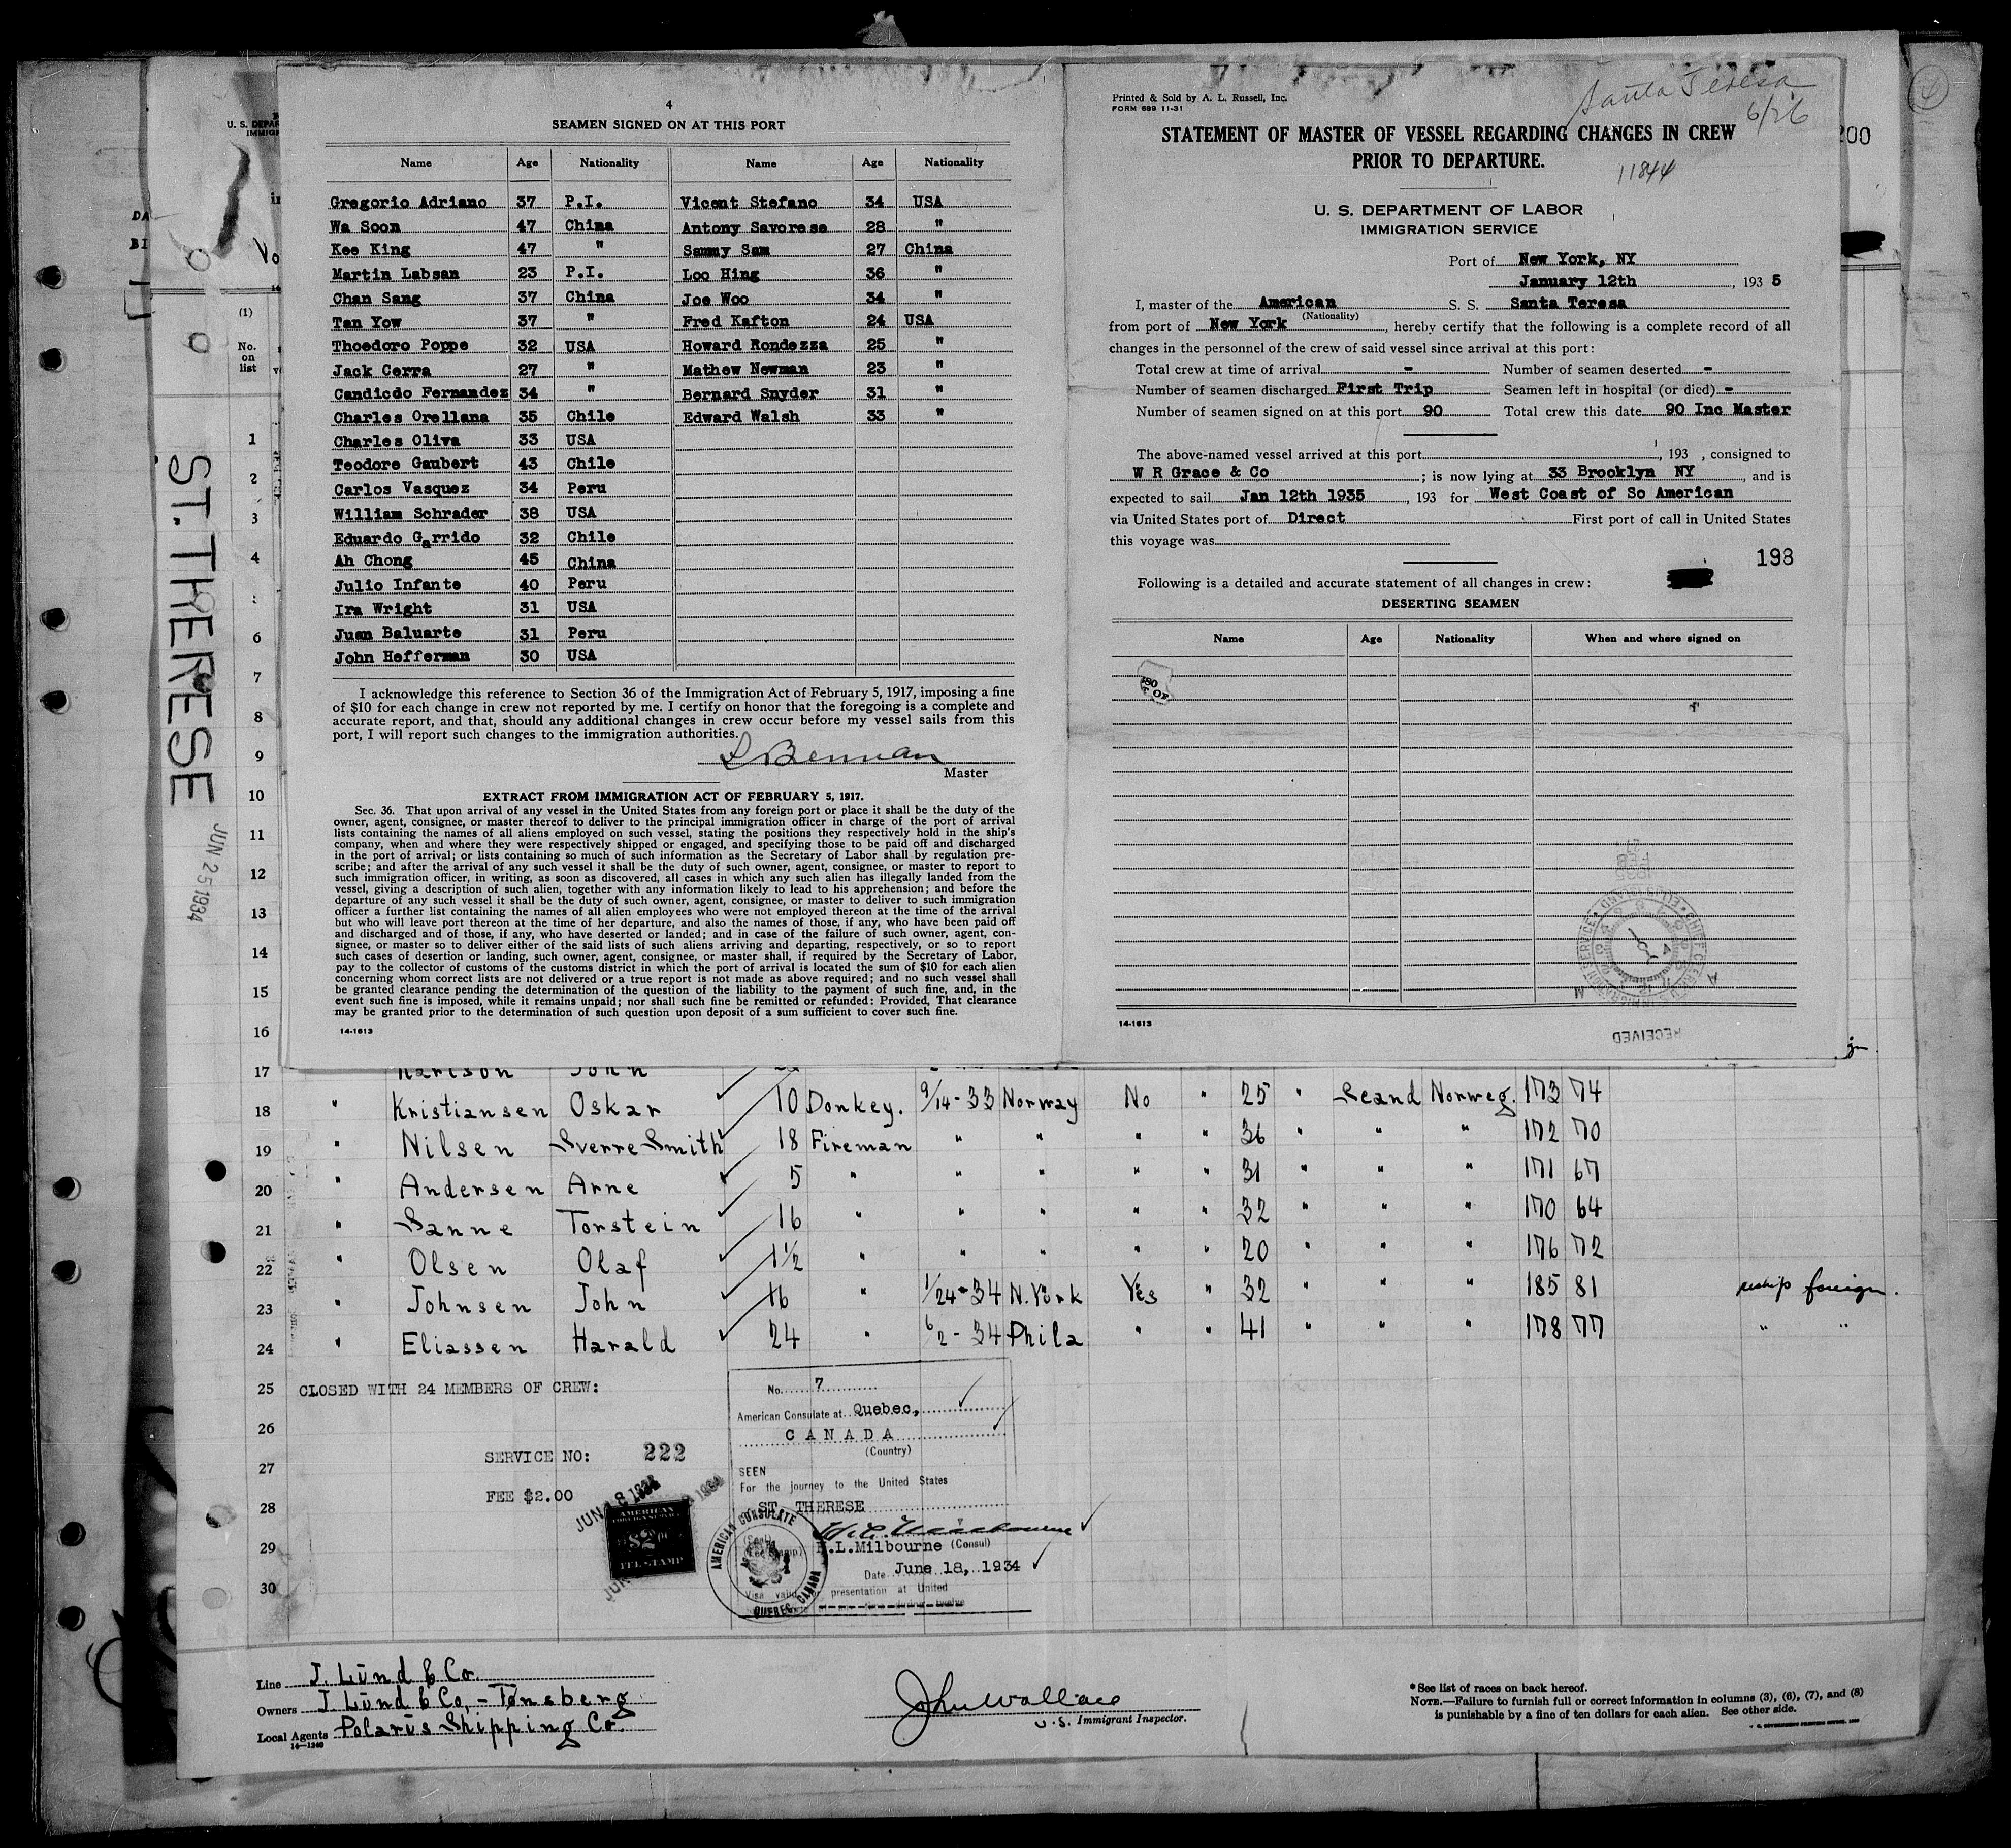 4
SEAMEN SIGNED ON AT THIS PORT
Name Age Nationality Name Age Nationality
Gregorio Adriano 37 P.I. Vicent Stefano 34 USA
Wa Soon 47 China Antony Savorese 28 "
Kee King 47 " Sammy Sam 27 China
Martin Labsan 23 P.I. Loo Hing 36 "
Chan Sang 37 China Joe Woo 34 "
Tan Yow 37 " Fred Kafton 24 USA
Thoedoro Poppe 32 USA Howard Rondezza 25 "
Jack Cerra 27 " Mathew Newman 23 "
Candicdo Fernandez 34 " Bernard Snyder 31 "
Charles Orellana 35 Chile Edward Walsh 33 "
Charles Oliva 33 USA
Teodore Gaubert 43 Chile
Carlos Vasquez 34 Peru
William Schrader 38 USA
Eduardo Garrido 32 Chile
Ah Chong 45 China
Julio Infante 40 Peru
Ira Wright 31 USA
Juan Baluarte 31 Peru
John Hefferman 30 USA
I acknowledge this reference to Section 36 of the Immigration Act of February 5, 1917, imposing a fine
of $10 for each change in crew not reported by me. I certify on honor that the foregoing is a complete and
accurate report, and that, should any additional changes in crew occur before my vessel sails from this
port, I will report such changes to the immigration authorities.
Master
EXTRACT FROM IMMIGRATION ACT OF FEBRUARY 5, 1917.
Sec. 36. That upon arrival of any vessel in the United States from any foreign port or place it shall be the duty of the
owner, agent, consignee, or master thereof to deliver to the principal immigration officer in charge of the port of arrival
lists containing the names of all aliens employed on such vessel, stating the positions they respectively hold in the ship's
company, when and where they were respectively shipped or engaged, and specifying those to be paid off and discharged
in the port of arrival; or lists containing so much of such information as the Secretary of Labor shall by regulation pre-
scribe; and after the arrival of any such vessel it shall be the duty of such owner, agent, consignee, or master to report to
such immigration officer, in writing, as soon as discovered, all cases in which any such alien has illegally landed from the
vessel, giving a description of such alien, together with any information likely to lead to his apprehension; and before the
departure of any such vessel it shall be the duty of such owner, agent, consignee, or master to deliver to such immigration
officer a further list containing the names of all alien employees who were not employed thereon at the time of the arrival
but who will leave port thereon at the time of her departure, and also the names of those, if any, who have been paid off
and discharged and of those, if any, who have deserted or landed; and in case of the failure of such owner, agent, con-
signee, or master so to deliver either of the said lists of such aliens arriving and departing, respectively, or so to report
such cases of desertion or landing, such owner, agent, consignee, or master shall, if required by the Secretary of Labor,
pay to the collector of customs of the customs district in which the port of arrival is located the sum of $10 for each alien
concerning whom correct lists are not delivered or a true report is not made as above required; and no such vessel shall
be granted clearance pending the determination of the question of the liability to the payment of such fine, and, in the
event such fine is imposed, while it remains unpaid; nor shall such fine be remitted or refunded: Provided, That clearance
may be granted prior to the determination of such question upon deposit of a sum sufficient to cover such fine.
14-1613
Printed & Sold by A. L. Russell, Inc.
FORM 689 11-31
Santa Teresa
6/26
STATEMENT OF MASTER OF VESSEL REGARDING CHANGES IN CREW
PRIOR TO DEPARTURE.
11844
U. S. DEPARTMENT OF LABOR
IMMIGRATION SERVICE
Port of New York, NY
January 12th, 1935
I, master of the American S. S. Santa Teresa
(Nationality)
from port of New York, hereby certify that the following is a complete record of all
changes in the personnel of the crew of said vessel since arrival at this port:
Total crew at time of arrival - Number of seamen deserted -
Number of seamen discharged First Trip Seamen left in hospital (or died) -
Number of seamen signed on at this port 90 Total crew this date 90 Inc Master
The above-named vessel arrived at this port, 193 , consigned to
W R Grace & Co ; is now lying at 33 Brooklyn NY, and is
expected to sail Jan 12th 1935, 193 for West Coast of So American
via United States port of Direct First port of call in United States
this voyage was
198
Following is a detailed and accurate statement of all changes in crew:
DESERTING SEAMEN
Name Age Nationality When and where signed on
14-1613
RECEIVED
200
ST. THERESE
JUN 25 1934
(1)
No.
on
list
1
2
3
4
6
7
8
9
10
11
12
13
14
15
16
17 Karlson John
18 " Kristiansen Oskar 10 Donkey. 9/14-33 Norway No " 25 " Scand Norweg. 173 74
19 " Nilsen Sverre Smith 18 Fireman " " " " 36 " " " 172 70
20 " Andersen Arne 5 " " " " " 31 " " " 171 67
21 " Sanne Torstein 16 " " " " " 32 " " " 170 64
22 " Olsen Olaf 1½ " " " " " 20 " " " 176 72
23 " Johnsen John 16 " 1/24-34 N. York Yes " 32 " " " 185 81 reship foreign.
24 " Eliassen Harald 24 " 6/2-34 Phila " " 41 " " " 178 77 " "
25 CLOSED WITH 24 MEMBERS OF CREW:
26
27
28
29
30
SERVICE NO: 222
FEE $2.00
JUN 18 1934
AMERICAN
$2
FEE STAMP
No. 7
American Consulate at Quebec,
CANADA
(Country)
SEEN
For the journey to the United States
ST. THERESE
H.L.Milbourne (Consul)
Date June 18, 1934
Visa valid for presentation at United
AMERICAN CONSULATE
QUEBEC, CANADA
Line J. Lund & Co.
Owners J. Lund & Co, - Tønsberg
Local Agents Polarus Shipping Co.
14-1240
John Wallace
U.S. Immigrant Inspector.
*See list of races on back hereof.
NOTE.—Failure to furnish full or correct information in columns (3), (6), (7), and (8)
is punishable by a fine of ten dollars for each alien. See other side.